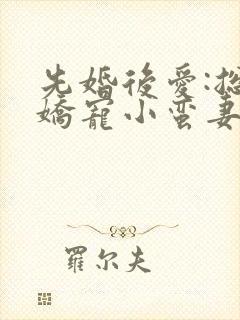 先婚後愛:
嬌寵小蛮妻
羅尔夫